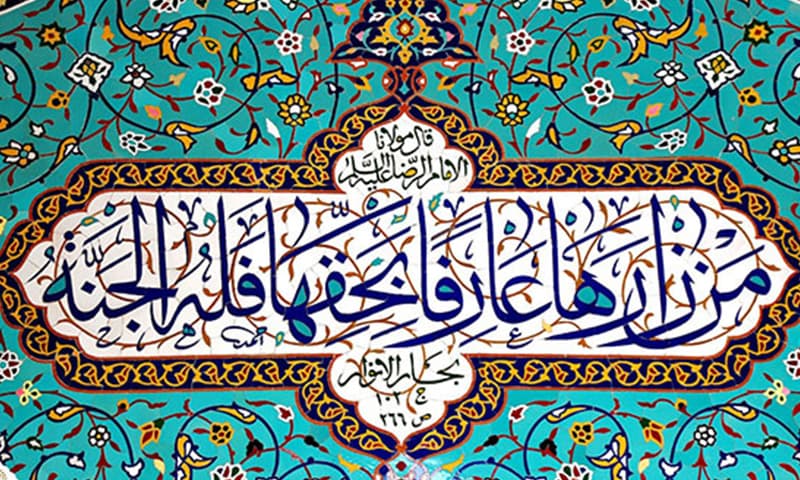 قال مولانا
الإمام الرضا علیه السلام
مَنْ زَارَهَا عَارِفًا بِحَقِّهَا فَلَهُ الْجَنَّةُ
بحار الانوار
ج ١٠٢
ص ٢٦٦